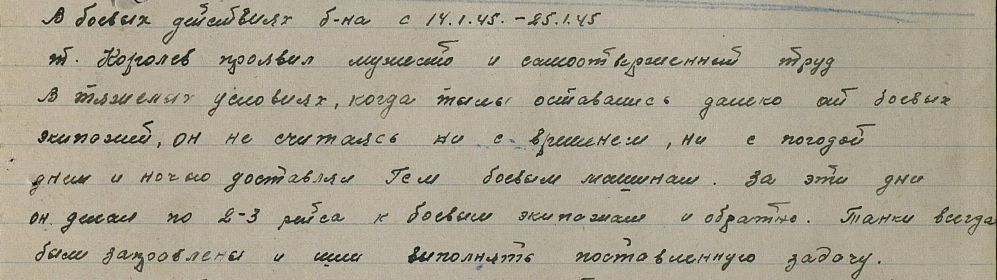 В боевых действиях б-на с 14.1.45. – 25.1.45
т. Королев проявил мужество и самоотверженный труд
В тяжелых условиях, когда тылы оставались далеко от боевых
экипажей, он не считаясь ни с временем, ни с погодой
днем и ночью доставлял Гсм боевым машинам. За эти дни
он делал по 2-3 рейса к боевым экипажам и обратно. Танки всегда
были заправлены и шли выполнять поставленную задачу.